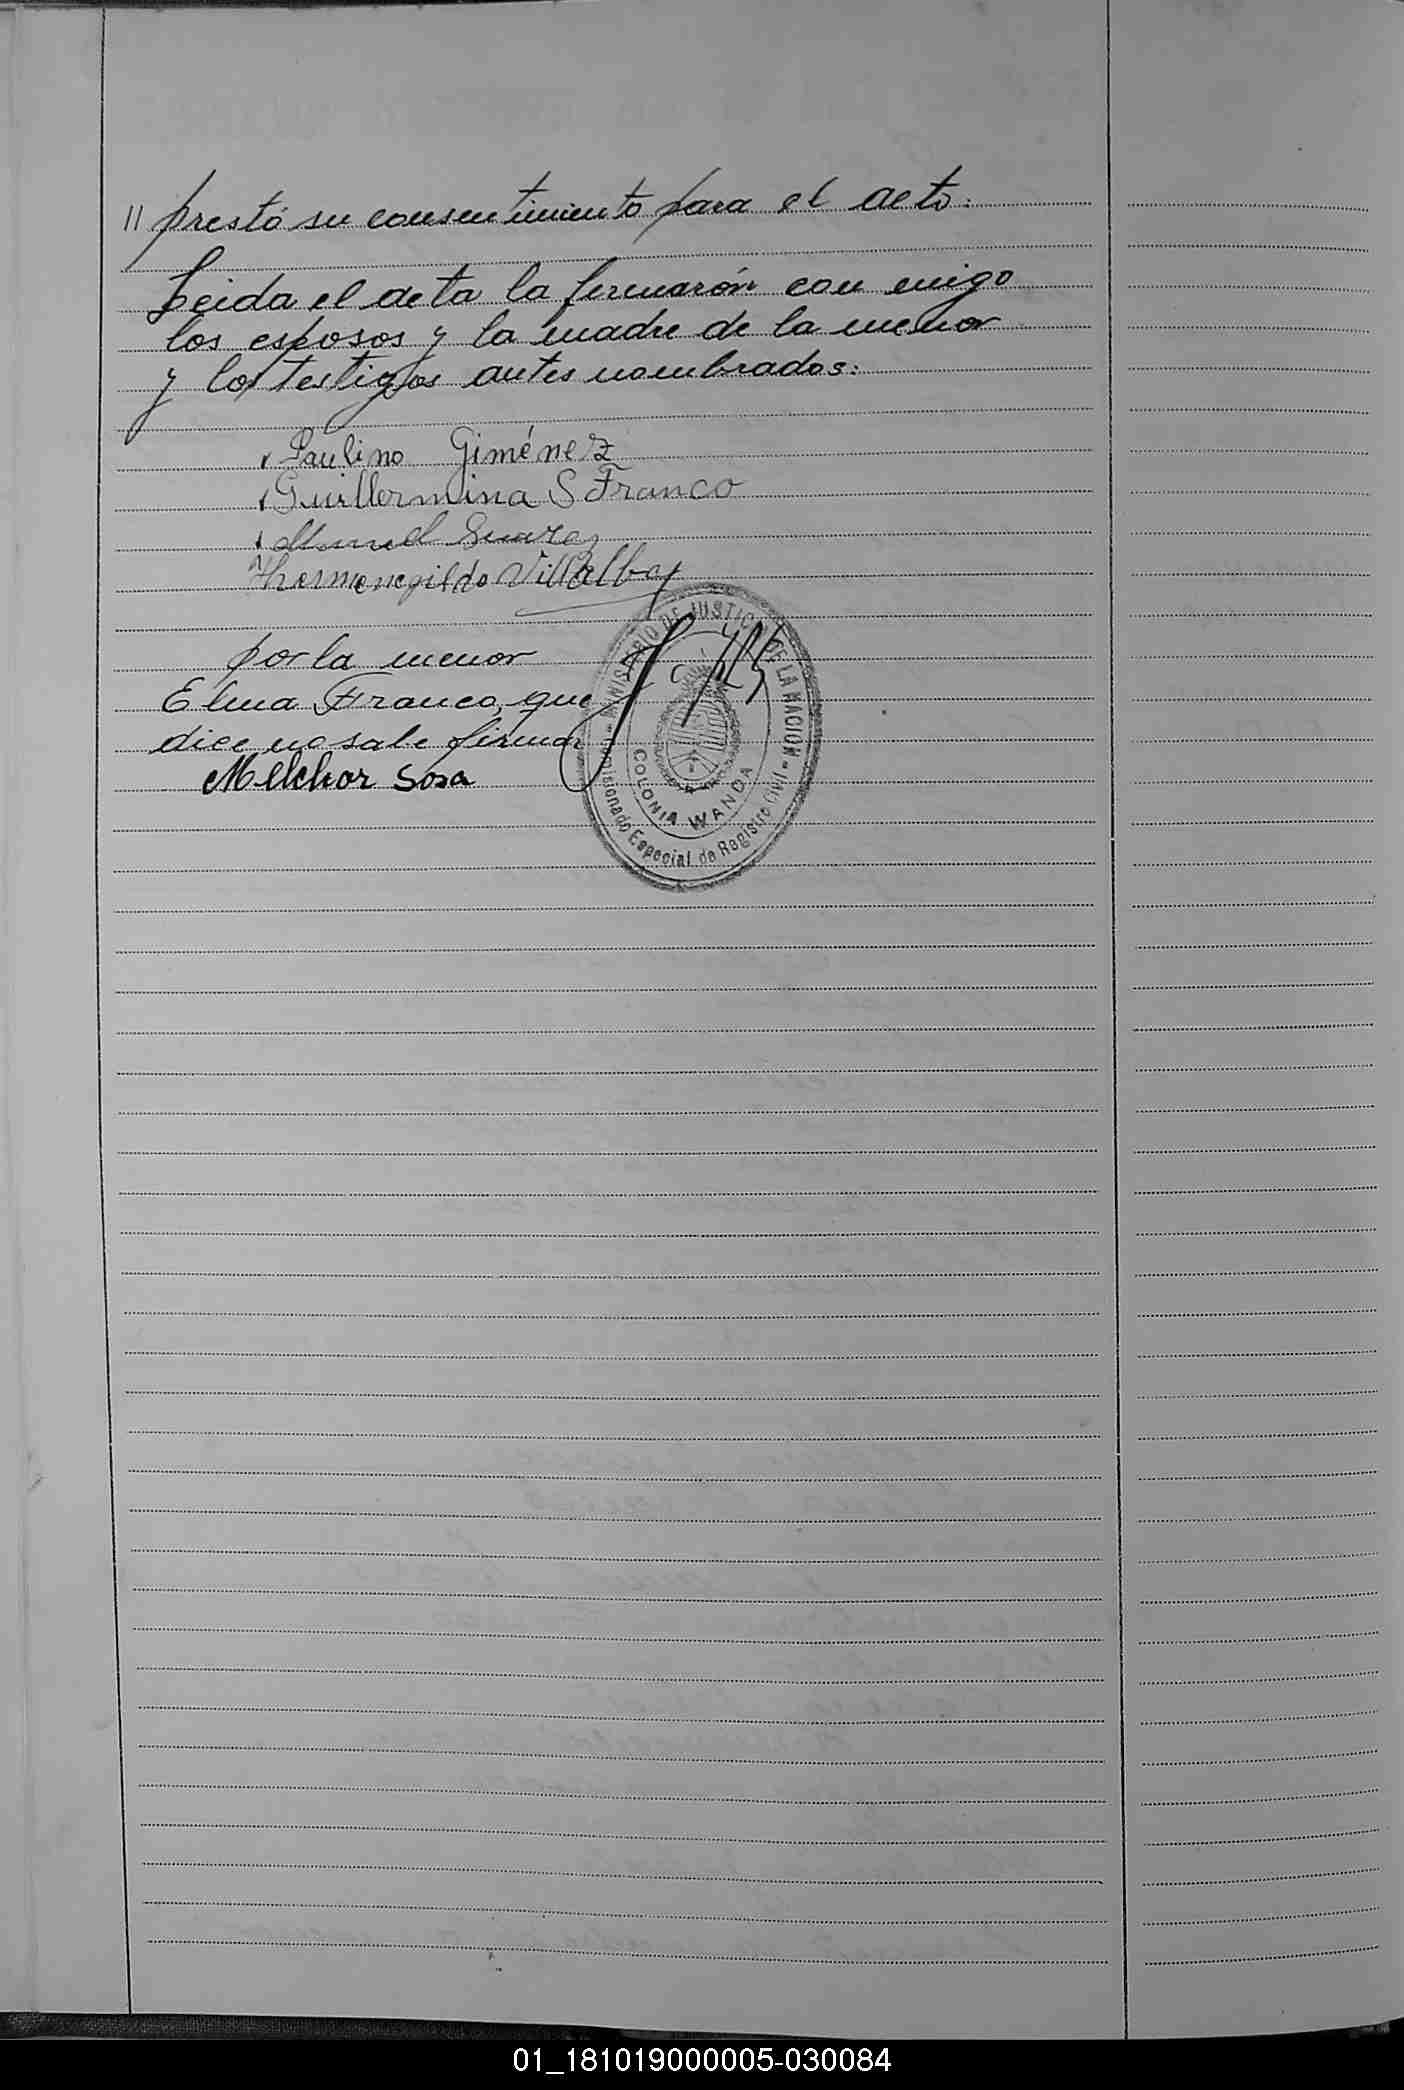 // prestó su consentimiento para el acto.
Leida el acta la firmarón con migo
los esposos y la madre de la menor
y los testigos antes nombrados:
Paulino Giménez
Guillermina S Franco
Manuel Suarez
Hermenegildo Villalba
por la menor
Elma Franco, que
dice no sabe firmar
Melchor Sosa
MINISTERIO DE JUSTICIA DE LA NACION
COLONIA WANDA
Comisionado Especial de Registro Civil
01_181019000005-030084